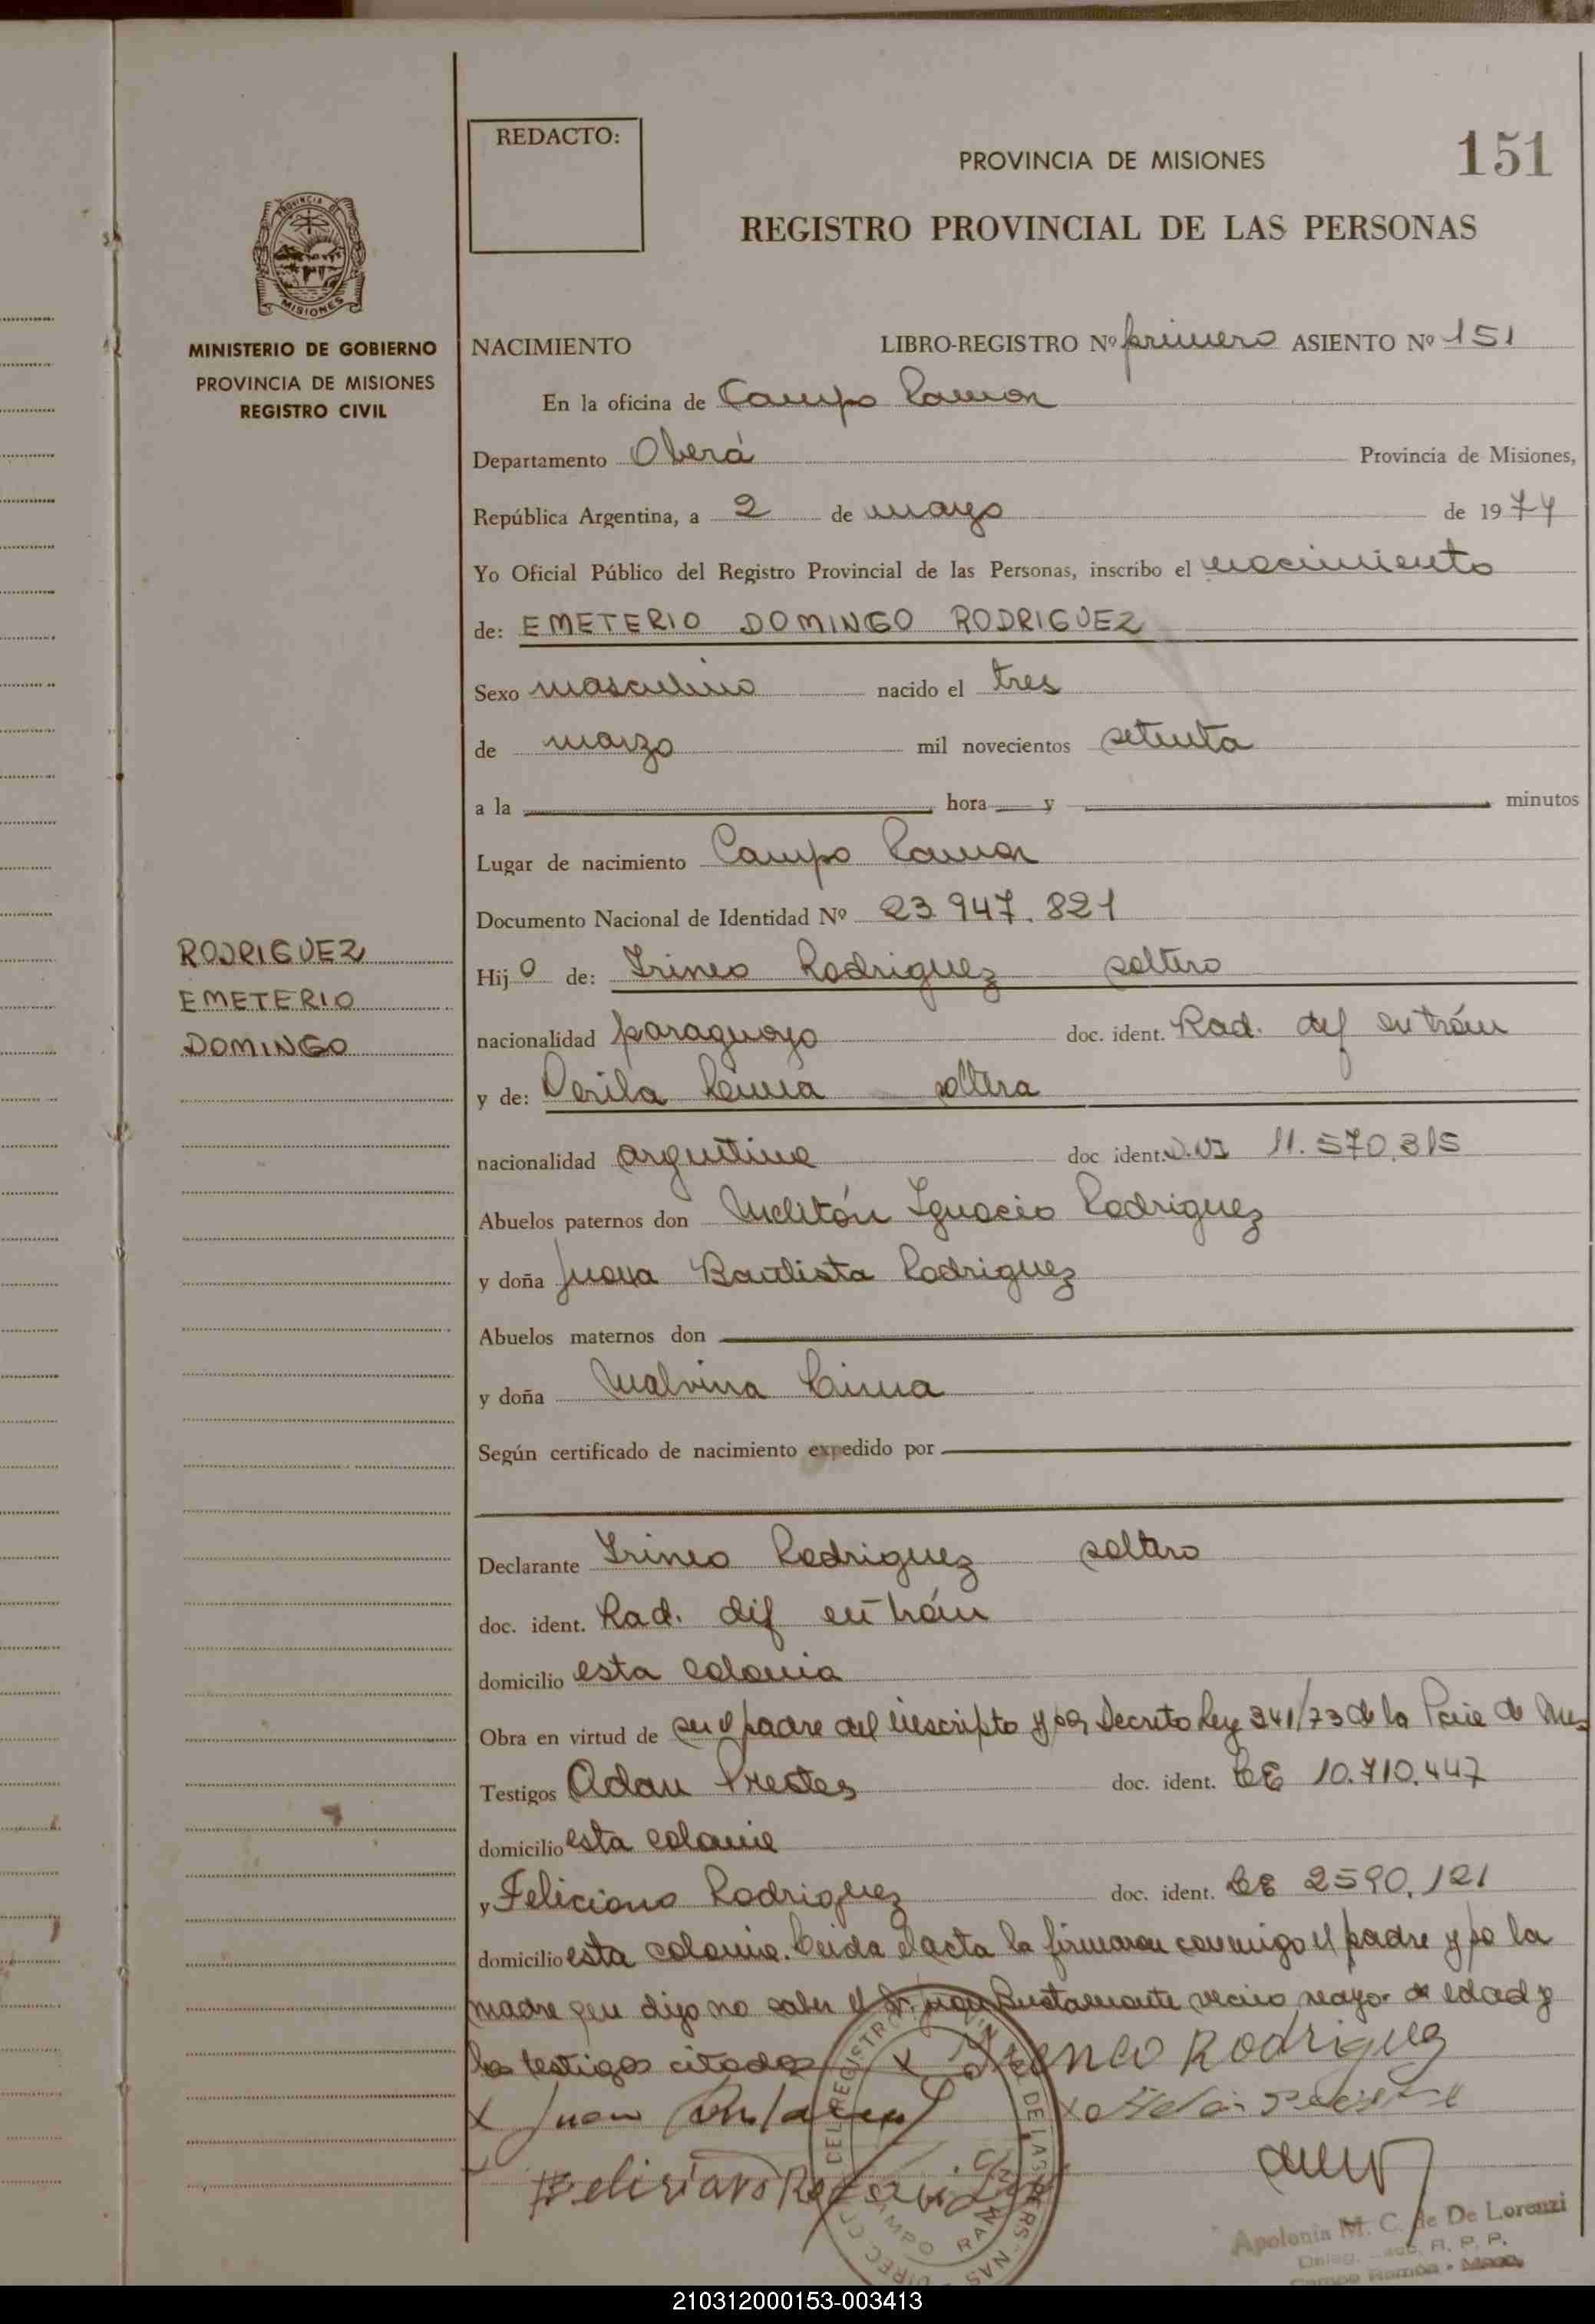 REDACTO:
PROVINCIA DE MISIONES
151
REGISTRO PROVINCIAL DE LAS PERSONAS
PROVINCIA DE
MISIONES
MINISTERIO DE GOBIERNO
PROVINCIA DE MISIONES
REGISTRO CIVIL
NACIMIENTO LIBRO-REGISTRO Nº primero ASIENTO Nº 151
En la oficina de Campo Ramon
Departamento Oberá Provincia de Misiones,
República Argentina, a 2 de mayo de 1974
Yo Oficial Público del Registro Provincial de las Personas, inscribo el nacimiento
de: EMETERIO DOMINGO RODRIGUEZ
Sexo masculino nacido el tres
de marzo mil novecientos setenta
a la hora y minutos
Lugar de nacimiento Campo Ramon
Documento Nacional de Identidad Nº 23.947.821
RODRIGUEZ
EMETERIO
DOMINGO
Hijo de: Irineo Rodriguez soltero
nacionalidad paraguayo doc. ident. Rad. def en trám
y de: Lima soltera
nacionalidad argentina doc ident. 11.570.315
Abuelos paternos don Melitón Ignacio Rodriguez
y doña Juana Bautista Rodriguez
Abuelos maternos don
y doña Malvina Lima
Según certificado de nacimiento expedido por
Declarante Irineo Rodriguez soltero
doc. ident. Rad. dif en trám
domicilio esta colonia
Obra en virtud de ser el padre del inscripto y por Decreto Ley 341/73 de la Pcia de Mnes
Testigos Adan Prestes doc. ident. CE 10.710.447
domicilio esta colonia
y Feliciano Rodriguez doc. ident. CE 2590.121
domicilio esta colonia. Leida el acta la firmaron conmigo el padre y po la
madre que dijo no saber el Sr. Juan Bustamante vecino mayor de edad y
los testigos citados X Rodriguez
X Juan
Apolonia M. C. de De Lorenzi
R. P. P.
Campo Ramón - Mnes.
210312000153-003413